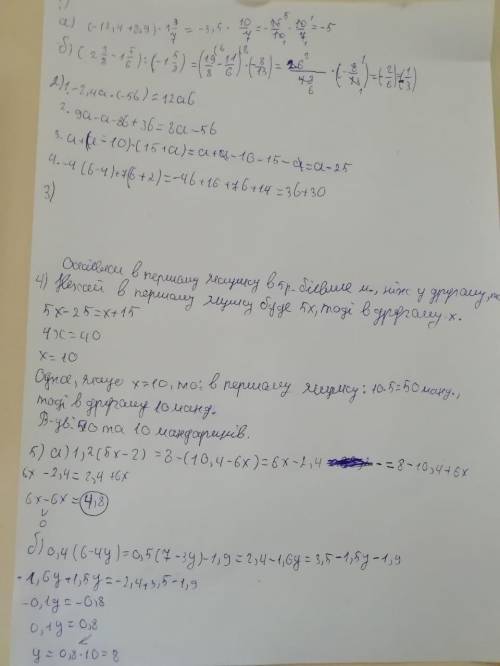 1)
а) (-12,4+8,9)·1 3/7 = -3,5 · 10/7 = -35/10 · 10/7 = -5
б) (2 3/8 - 1 5/6) : (-1 5/8) = (19/8 - 11/6) · (-8/13) = 26/48 · (-8/13) = (-2/6) = (-1/3)
2) 1. -2,4a·(-5б) = 12aб
2. 9a-a-8б+3б = 8a-5б
3. a+(a-10)-(15+a) = a+a-10-15-a = a-25
4. -4(б-4)+7(б+2) = -4б+16+7б+14 = 3б+30
3)
Оскільки в першому ящику в 5р. більше м., ніж у другому,
4) Нехай в першому ящику буде 5x, тоді в другому x.
5x-25 = x+15
4x = 40
x = 10
Отже, якщо x=10, то: в першому ящику: 10·5=50 манд.,
тоді в другому 10 манд.
В-дь: 50 та 10 мандаринів.
5) а) 1,2(5x-2) = 8-(10,4-6x) = 6x-2,4 = 8-10,4+6x
6x-2,4 = 2,4+6x
6x-6x = 4,8
0
б) 0,4(6-4y) = 0,5(7-3y)-1,9 = 2,4-1,6y = 3,5-1,5y-1,9
-1,6y+1,5y = -2,4+3,5-1,9
-0,1y = -0,8
0,1y = 0,8
y = 0,8·10 = 8